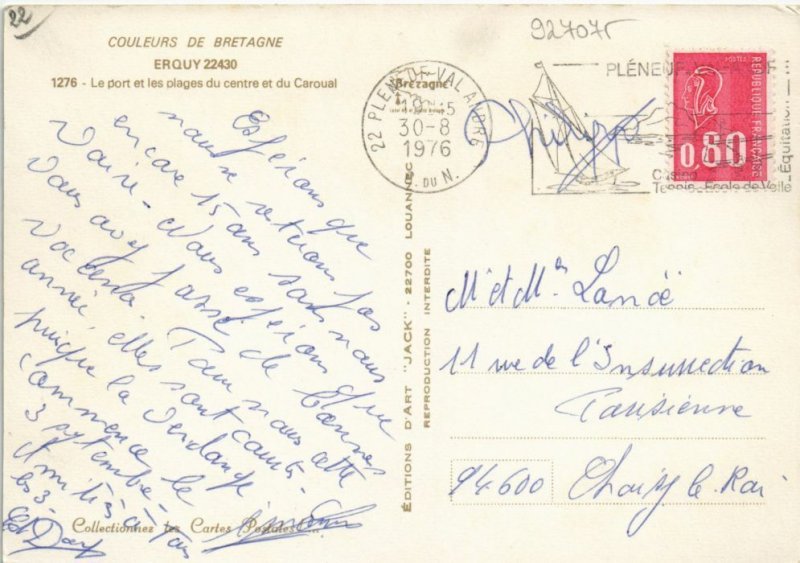 22
COULEURS DE BRETAGNE
ERQUY 22430
1276 - Le port et les plages du centre et du Caroual
Bretagne
927075
22 PLENEUF-VAL ANDRE
30-8
1976
C. DU N.
PLÉNEUF
Casino
Tennis École de Voile
Équitation
POSTES
RÉPUBLIQUE FRANÇAISE
0,80
Espérons que
nous ne resterons pas
encore 15 ans sans nous
voire. Nous espérons que
vous avez passé de bonnes
vacances. Pour nous cette
année, elles sont courtes
puisque la vendange
commence le
3 septembre.
Amitiés à tous
les 3.
ÉDITIONS D'ART "JACK" - 22700 LOUANNEC
REPRODUCTION INTERDITE
Mr et Mme Lancë
11 rue de l'Insurrection
Parisienne
94600 Choisy le Roi
Collectionnez les Cartes Postales